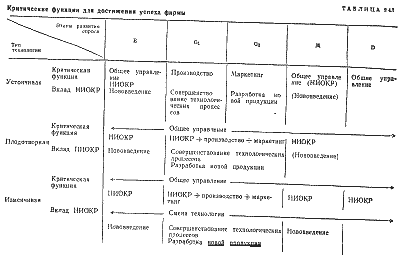 Критические функции для достижения успеха фирмы
ТАБЛИЦА 2.4.3
Этапы развития спроса
Тип технологии
E G₁ G₂ M D
Устойчивая
Критическая функция
Общее управление НИОКР
Производство
Маркетинг
Общее управление (НИОКР)
Общее управление
Вклад НИОКР
Нововведение
Совершенствование технологических процессов
Разработка новой продукции
(Нововведение)
Плодотворная
Критическая функция
Общее управление
НИОКР
НИОКР + производство + маркетинг
НИОКР
Вклад НИОКР
Нововведение
Совершенствование технологических процессов
Разработка новой продукции
(Нововведение)
Изменчивая
Критическая функция
Общее управление
НИОКР
НИОКР + производство + маркетинг
НИОКР
НИОКР
Вклад НИОКР
Смена технологии
Нововведение
Совершенствование технологических процессов
Разработка новой продукции
Нововведение